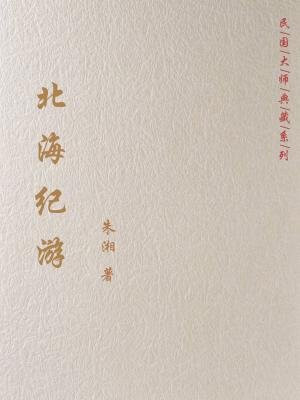 民国大师典藏系列
北海纪游
朱湘 著